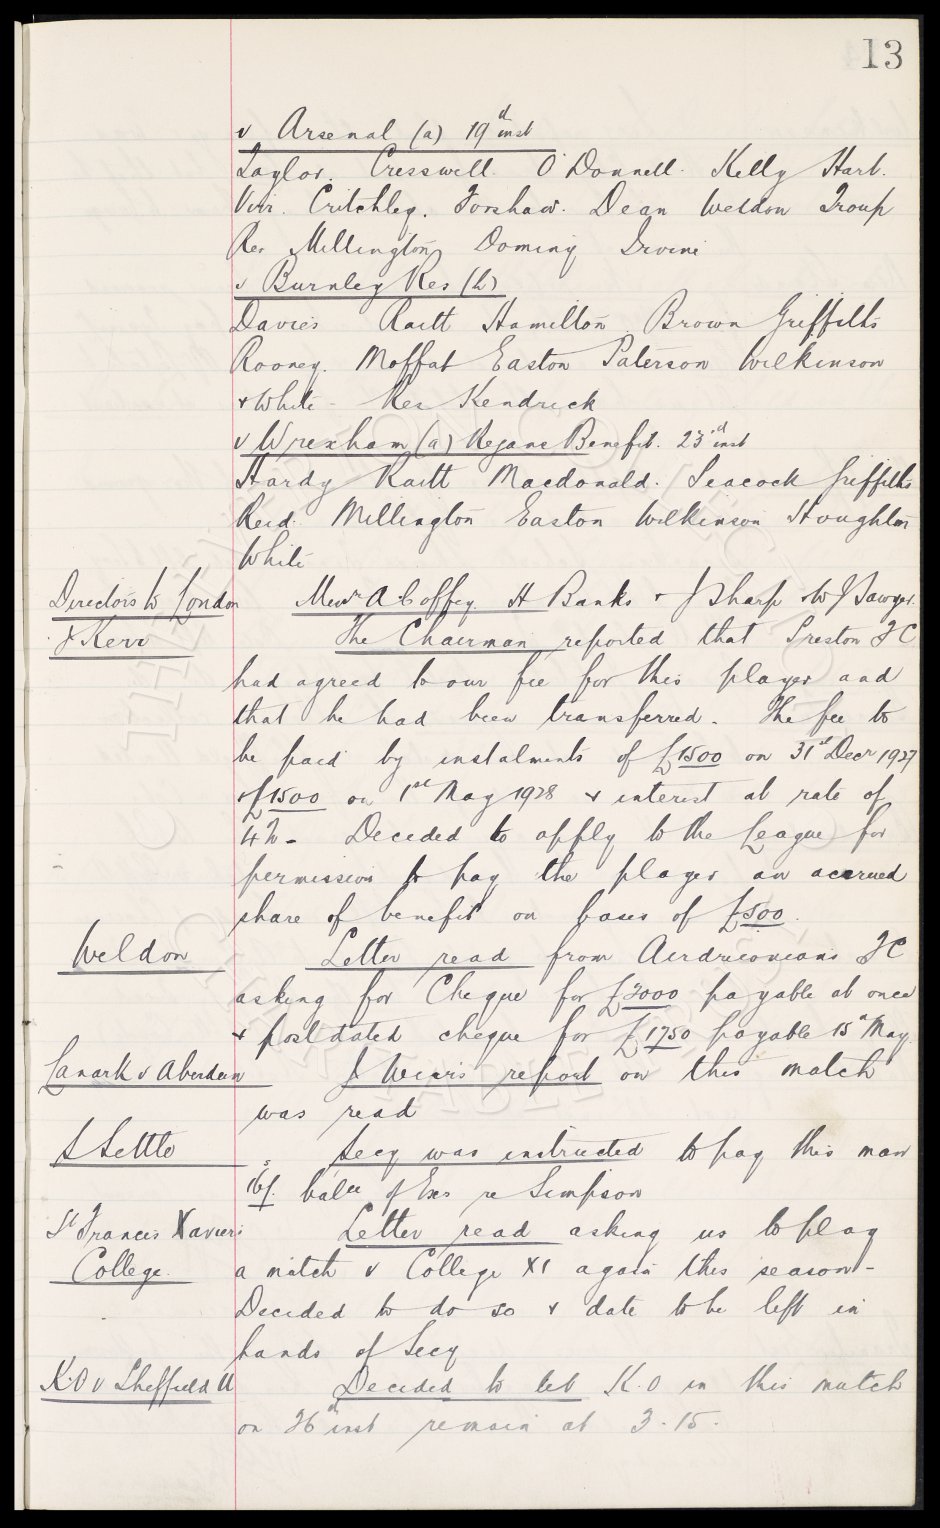 13
v Arsenal (a) 19th inst
Taylor. Cresswell. O'Donnell. Kelly Hart.
Virr. Critchley. Forshaw. Dean Weldon Troup
Res Millington Dominy Irvine
v Burnley Res (h)
Davies Raitt Hamilton Brown Griffiths
Rooney. Moffat Easton Paterson Wilkinson
& White - Res Kendrick
v Wrexham (a) Regans Benefit. 23rd inst
Hardy Raitt Macdonald. Peacock Griffiths
Reid. Millington Easton Wilkinson Houghton
White
Directors to London Messrs A. Coffey. H Banks & J Sharp & W J Sawyer.
J Kerr The Chairman reported that Preston F C
had agreed to our fee for this player and
that he had been transferred. The fee to
be paid by instalments of £1500 on 31st Decr 1927
& £1500 on 1st May 1928 & interest at rate of
4% - Decided to apply to the League for
permission to pay the player an accrued
share of benefit on bases of £500.
Weldon Letter read from Airdrieonians F C
asking for Cheque for £2000 payable at once
& post dated cheque for £1750 payable 15th May.
Lanark v Aberdeen J Weirs report on this match
was read
S Settle Secy was instructed to pay this man
16/- balce of Exs re Simpson
St Francis Xaviers Letter read asking us to play
College. a match v College XI again this season -
Decided to do so & date to be left in
hands of Secy
K.O v Sheffield U Decided to let K.O in this match
on 26th inst remain at 3.15.